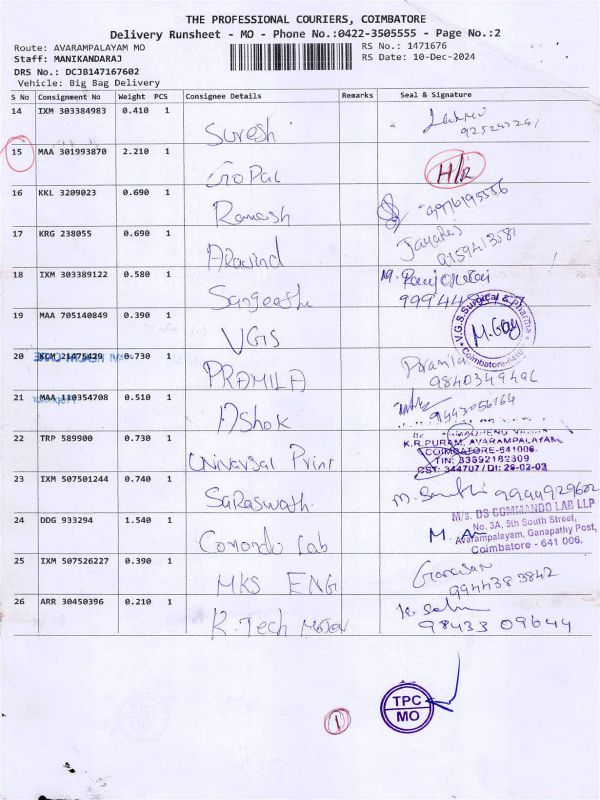 THE PROFESSIONAL COURIERS, COIMBATORE
Delivery Runsheet - MO - Phone No.:0422-3505555 - Page No.:2
Route: AVARAMPALAYAM MO RS No.: 1471676
Staff: MANIKANDARAJ RS Date: 10-Dec-2024
DRS No.: DCJB147167602
Vehicle: Big Bag Delivery
S No Consignment No Weight PCS Consignee Details Remarks Seal & Signature
14 IXM 303384983 0.410 1 Suresh
15 MAA 301993870 2.210 1 GoPal H/R
16 KKL 3209023 0.690 1 Ramesh
17 KRG 238055 0.690 1 Aravind
18 IXM 303389122 0.580 1 Sangeetha
19 MAA 705140849 0.390 1 VGS V.G.S.Surgical & Pharma Coimbatore
20 KCM 21475429 0.730 1 PRAMILA Pramila
21 MAA 110354708 0.510 1 AShok 9443056164
22 TRP 589900 0.730 1 Universal Print
K.R.PURAM, AVARAMPALAYAM
COIMBATORE-641006.
TIN: 33592182309
CST: 344707/DI: 26-02-03
23 IXM 507501244 0.740 1 Saraswathi
24 DDG 933294 1.540 1 Comondo Lab
M/s. DS COMMANDO LAB LLP
No. 3A, 5th South Street,
Avarampalayam, Ganapathy Post,
Coimbatore - 641 006.
25 IXM 507526227 0.390 1 MKS ENG Ganesan
9944383842
26 ARR 30450396 0.210 1 K.Tech Motor
98433 09644
TPC
MO
1